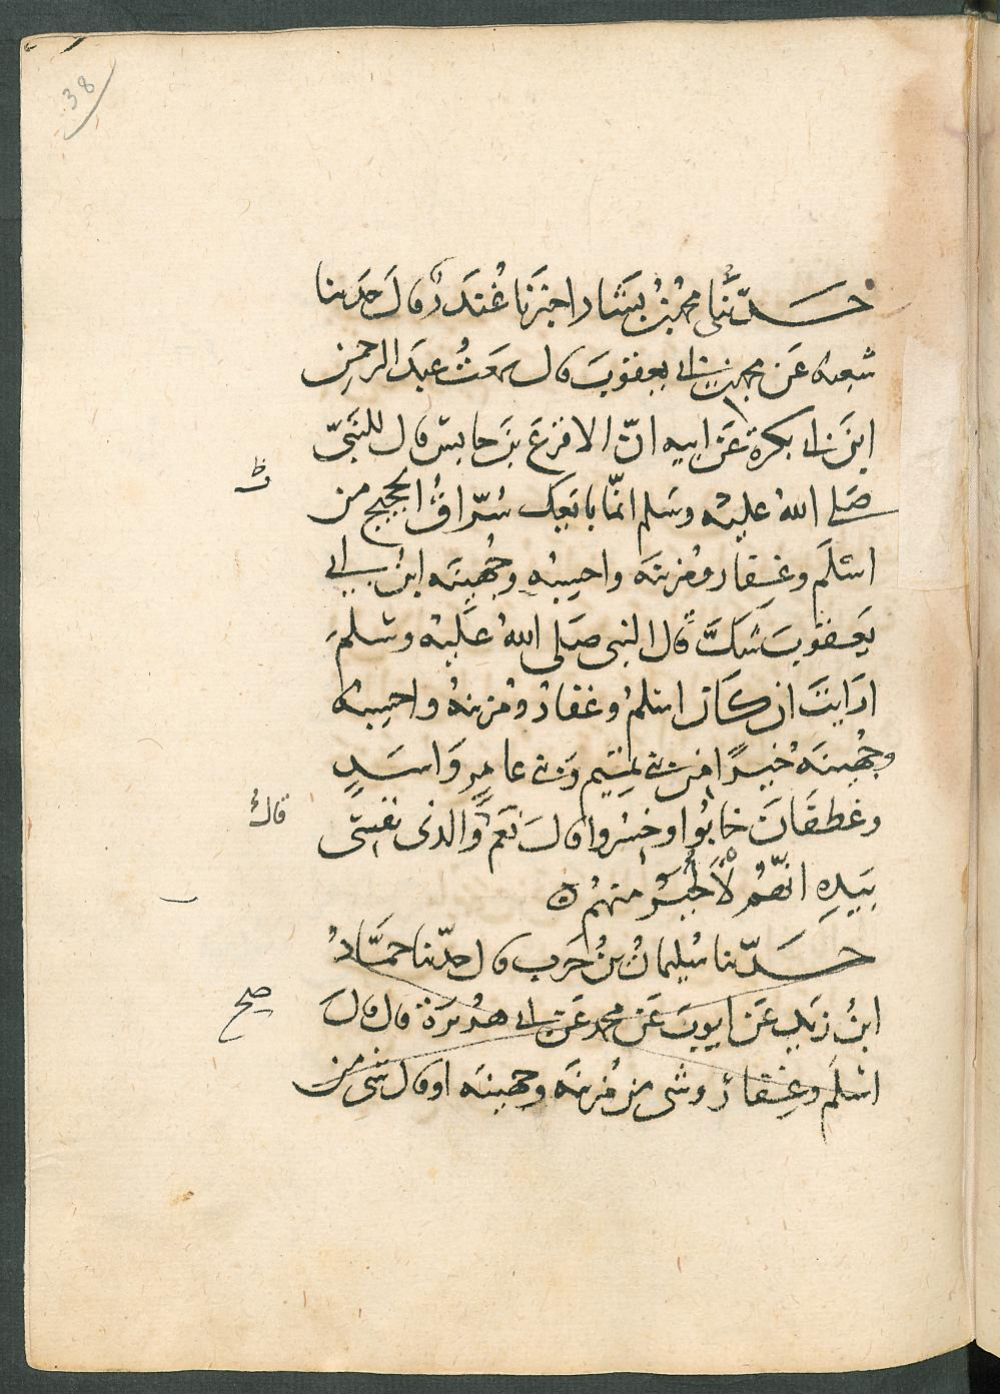 38
حدثنا محمد بن بشار اخبرنا غندر قال حدثنا
شعبة عن محمد بن ابي يعقوب قال سمعت عبد الرحمن
ابن ابي بكرة عن ابيه ان الاقرع بن حابس قال للنبي
صلى الله عليه وسلم انما بايعك سراق الحجيج من
اسلم وغفار ومزينة واحسبه وجهينة ابن ابي
يعقوب شك قال النبي صلى الله عليه وسلم
ارايت ان كان اسلم وغفار ومزينة واحسبه
وجهينة خيرا من بني تميم وبني عامر واسد
وغطفان خابوا وخسروا قال نعم والذي نفسي
قال
بيده انهم لاخير منهم ه
حدثنا سليمان بن حرب قال حدثنا حماد
ابن زيد عن ايوب عن محمد عن ابي هريرة قال قال
صح
اسلم وغفار وشى من مزينة وجهينة او قال شى من